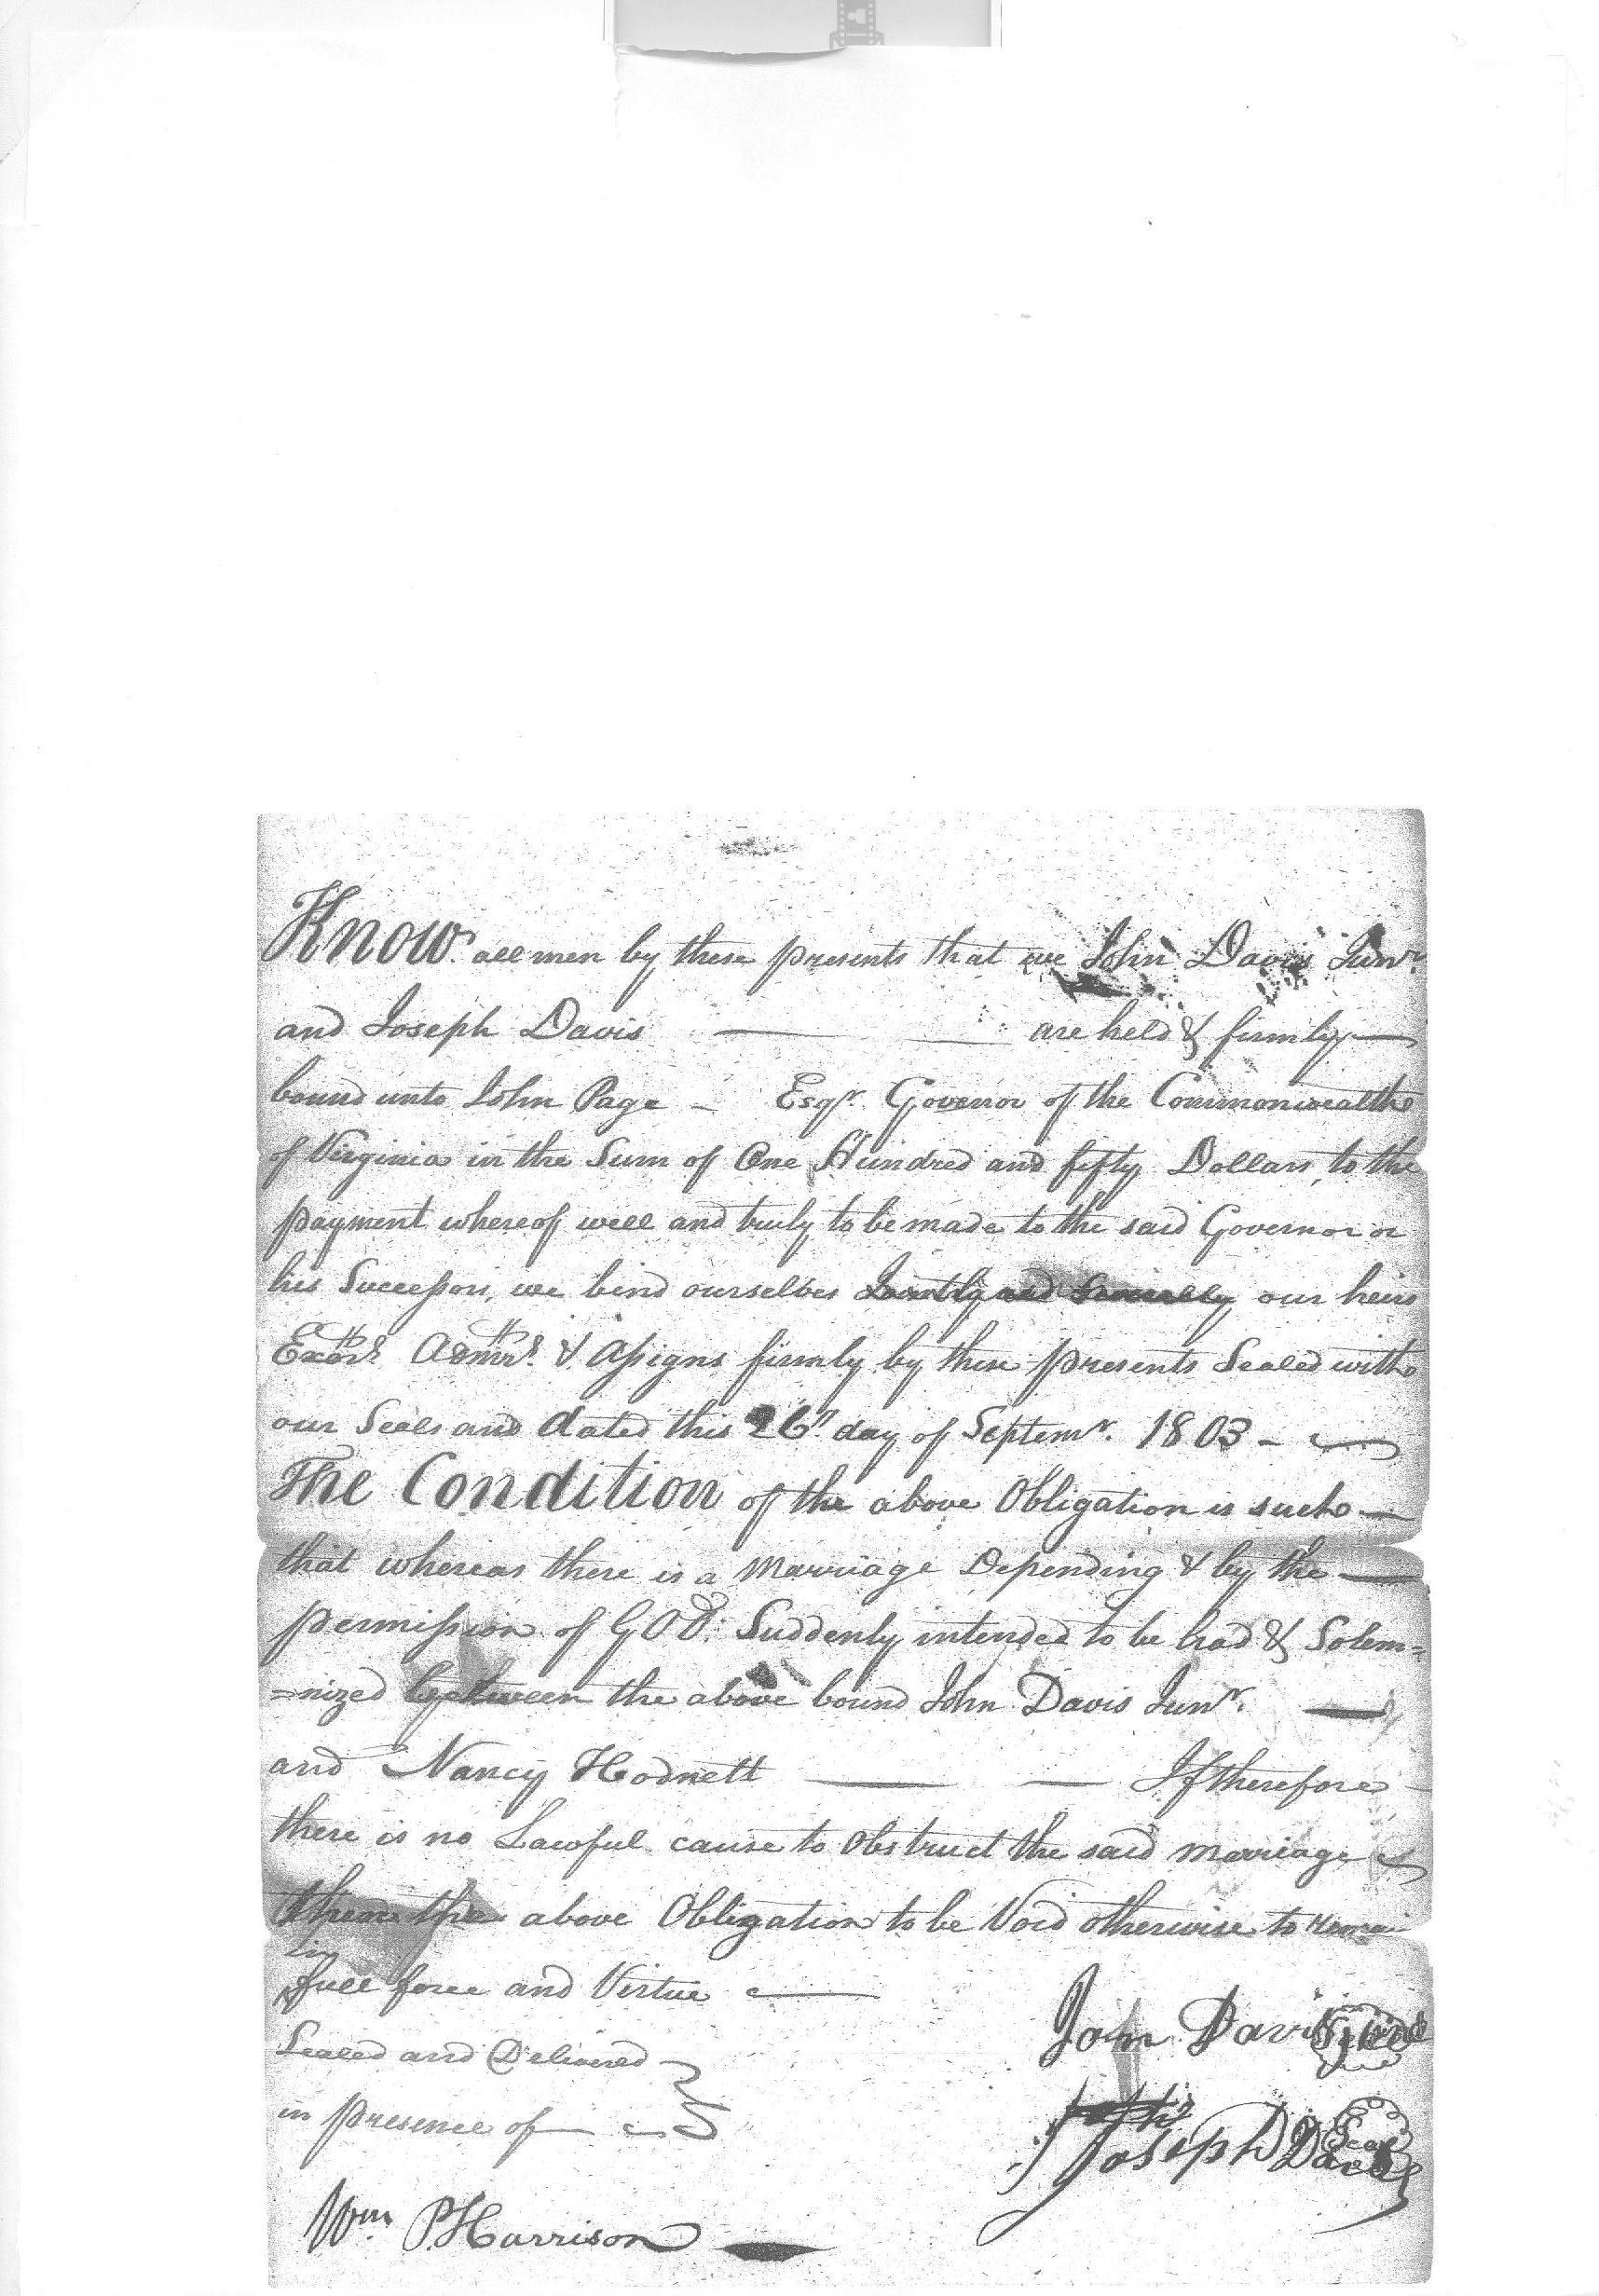 Know all men by these presents that we John Davis Junr.
and Joseph Davis are held & firmly
bound unto John Page - Esqr. Governor of the Commonwealth
of Virginia in the Sum of One Hundred and fifty Dollars, to the
payment whereof well and truly to be made to the said Governor or
his Successors, we bind ourselves Jointly and Severally our heirs
Exors. Admrs. & Assigns firmly by these presents Sealed with
our Seals and dated this 26th day of Septemr. 1803 -
The Condition of the above Obligation is such
that whereas there is a Marriage Depending & by the
permission of GOD. Suddenly intended to be had & Solem=
=nized between the above bound John Davis Junr.
and Nancy Hodnett If therefore
there is no Lawful cause to Obstruct the said marriage
then the above Obligation to be Void otherwise to remain
in
full force and Virtue
Sealed and Delivered
in presence of
John Davis Seal
Joseph Davis Seal
Wm. P Harrison